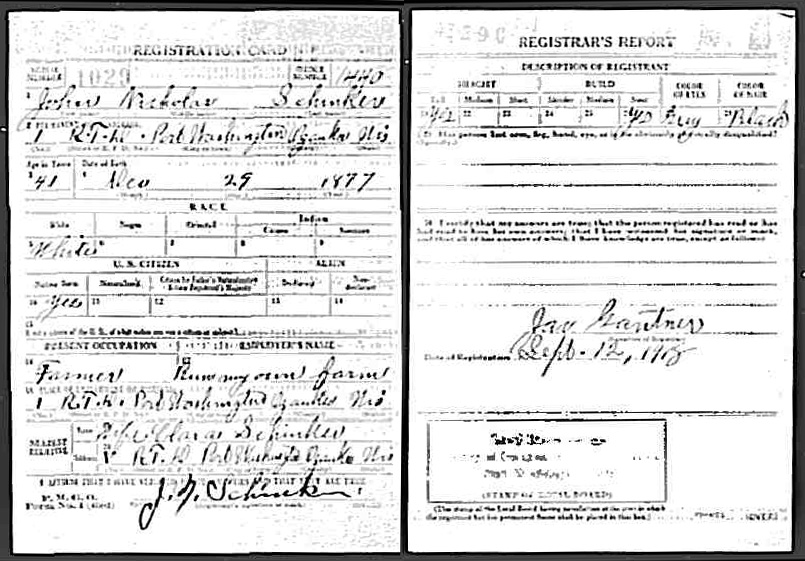 REGISTRATION CARD
SERIAL NUMBER 1029 ORDER NUMBER 1440
John Nicholas Schinker
1 R.F.D. Port Washington Ozaukee Wis
Age in Years Date of Birth
41 Nov 29 1877
RACE
White Negro Oriental Indian
Citizen
White
U. S. CITIZEN ALIEN
Native Born Naturalized Citizen by Father's Naturalization Before Registrant's Majority Declarant Non-declarant
10 Yes 11 12 13 14
15
PRESENT OCCUPATION EMPLOYER'S NAME
Farmer Runs my own farm
1 R.F.D. Port Washington Ozaukee Wis
NEAREST RELATIVE
Name Clara Schinker
Address R.F.D. Port Washington Ozaukee Wis
I AFFIRM THAT I HAVE VERIFIED ABOVE ANSWERS AND THAT THEY ARE TRUE
P. M. G. O.
Form No. 1 (Red)
J. N. Schinker
REGISTRAR'S REPORT
DESCRIPTION OF REGISTRANT
HEIGHT BUILD COLOR OF EYES COLOR OF HAIR
Tall Medium Short Slender Medium Stout
Yes 22 23 24 25 Yes Gray Black
Has person lost arm, leg, hand, eye, or is he obviously physically disqualified?
(Specify.)
30 I certify that my answers are true; that the person registered has read or has
had read to him his own answers; that I have witnessed his signature or mark,
and that all of his answers of which I have knowledge are true, except as follows:
Gantner
Date of Registration Sept. 12, 1918
(STAMP OF LOCAL BOARD)
(The stamp of the Local Board having jurisdiction of the area in which
the registrant has his permanent home shall be placed in this box.)